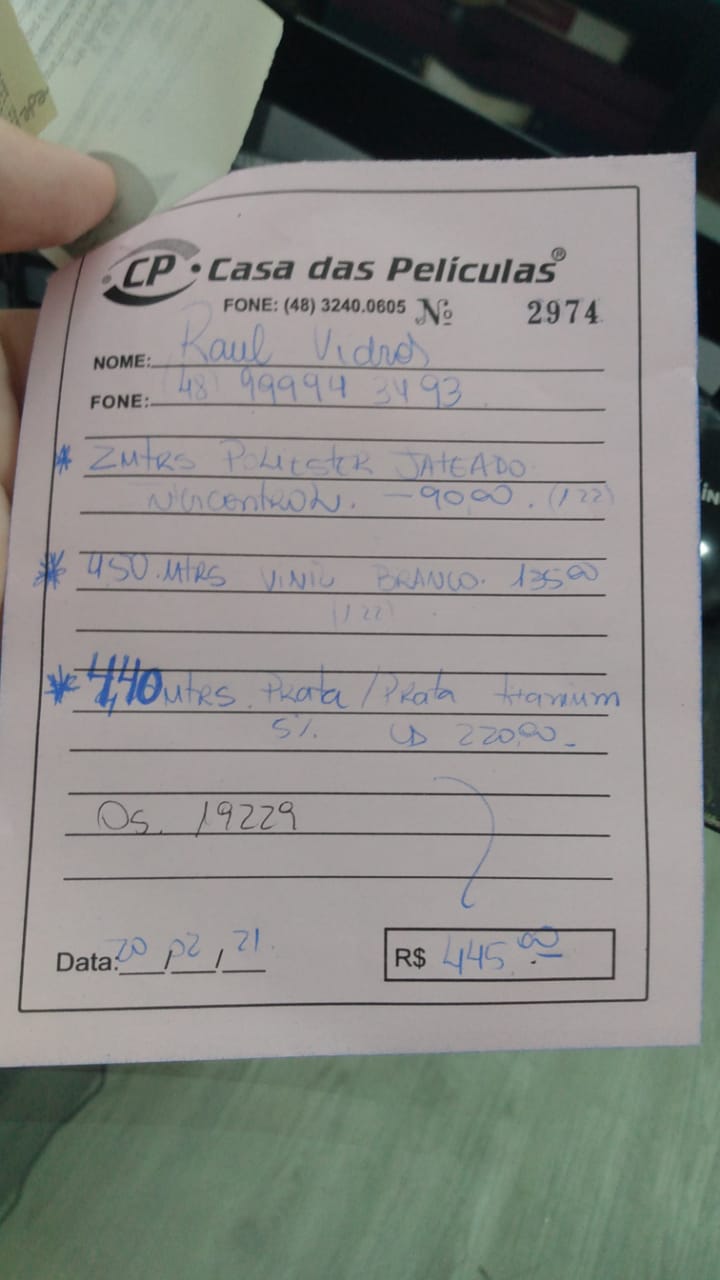 CP • Casa das Películas®
FONE: (48) 3240.0605 Nº 2974
NOME: Raul Vidros
FONE: (48) 99994 3493
* 2Mtrs POLIESTER JATEADO
- 90,00. (1.22)
* 4,50. Mtrs VINIL BRANCO. 135,00
(1.22)
* 4,40 Mtrs. Prata / Prata titanium
5% 220,00 -
Os. 19229
Data: 20 / 02 / 21. R$ 445,00